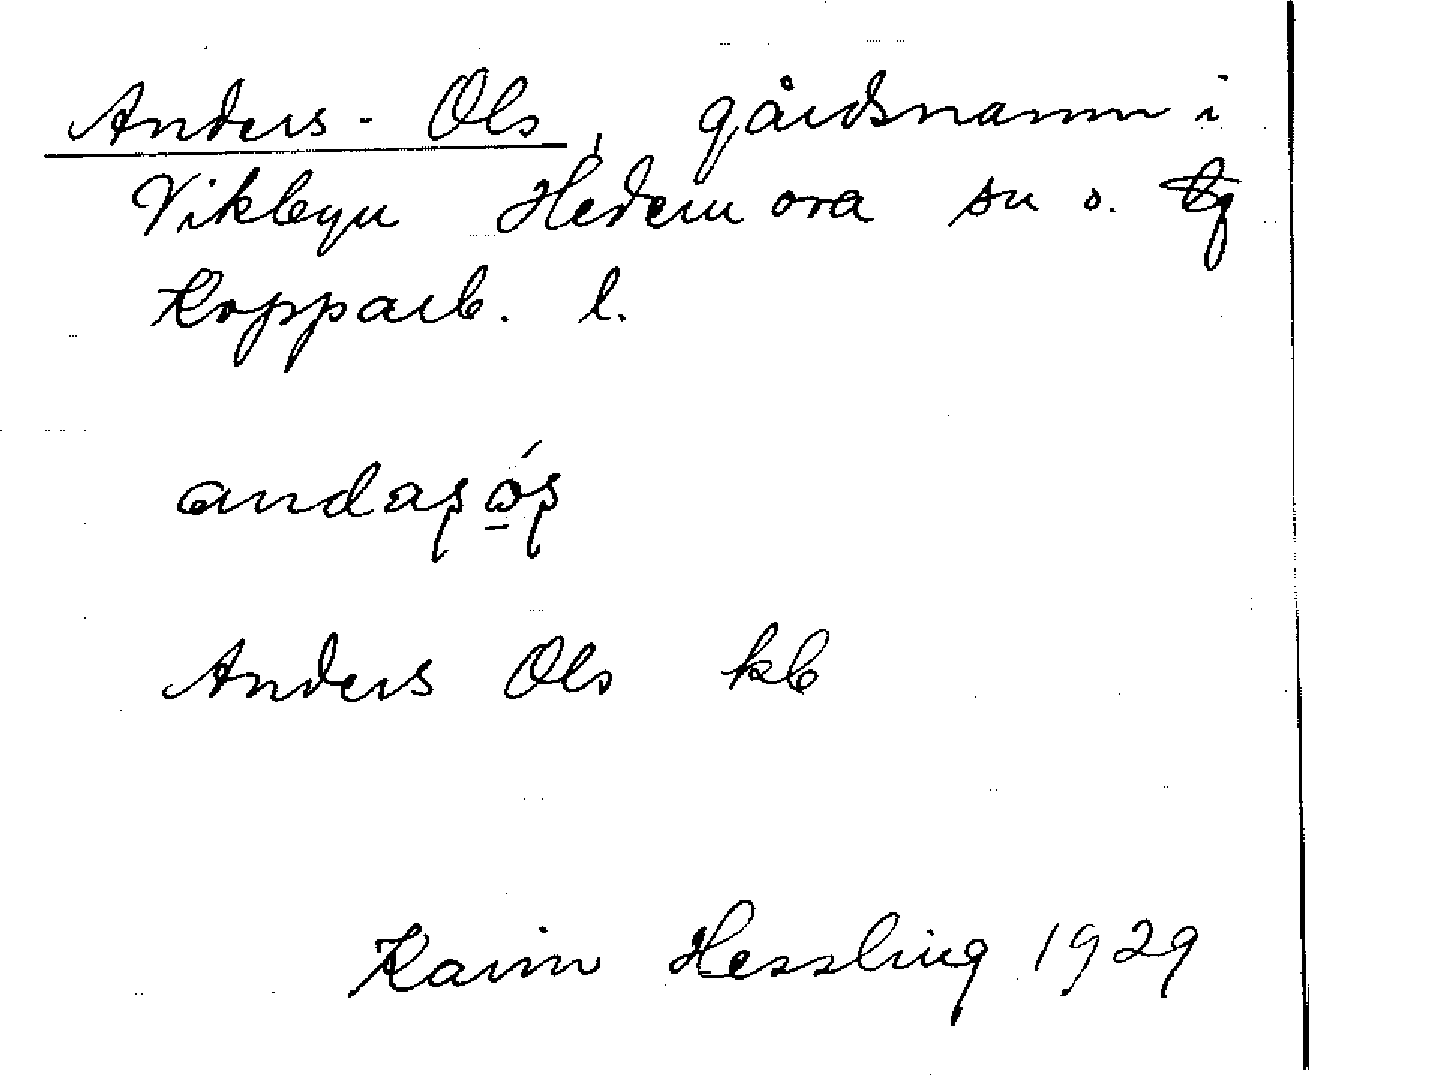 Anders-Ols, gårdsnamn i
Vikbyn Hedemora sn o. tg
Kopparb. l.
andaʂ ɷ́ʂ
Anders Ols kb
Karin Hessling 1929